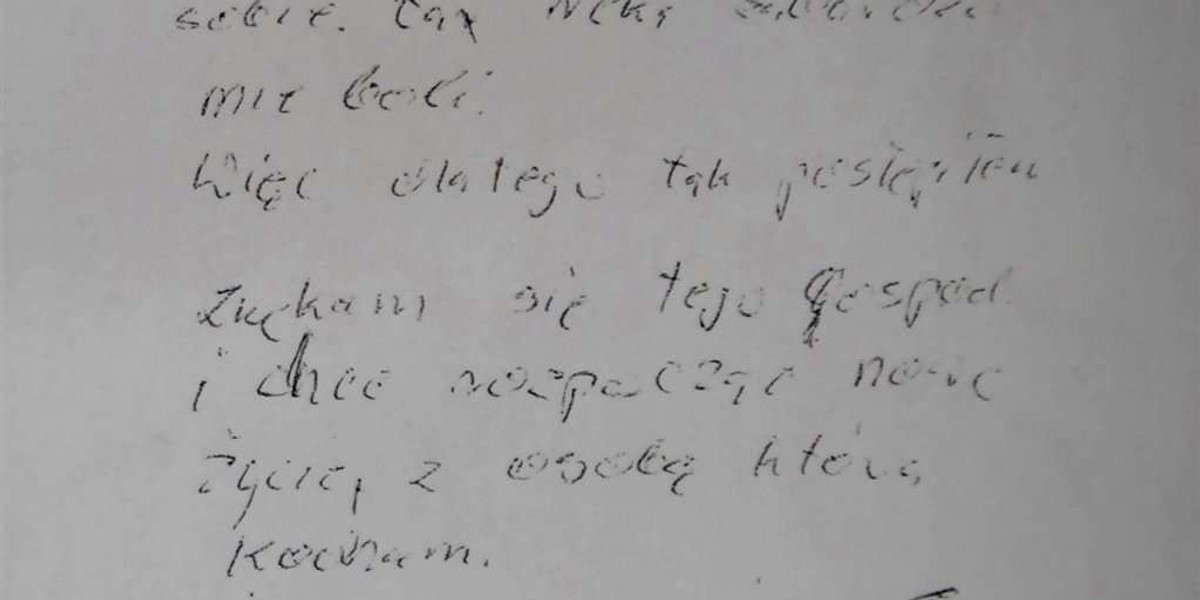 sobie. Tak
mie boli.
Więc dlatego tak postępiłem
zrzekam się tego gospod.
i chce rozpocząć nowe
życie, z osobą którą
kocham.